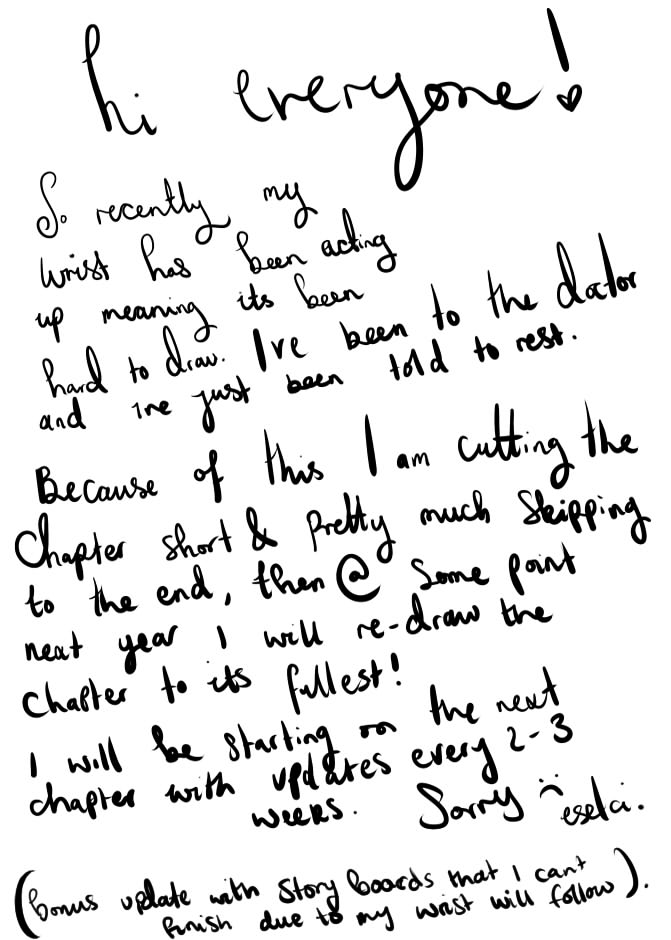 hi everyone!
So recently my
wrist has been acting
up meaning its been
hard to draw. I've been to the doctor
and ive just been told to rest.
Because of this I am cutting the
chapter short & pretty much skipping
to the end, then @ some point
next year I will re-draw the
chapter to its fullest!
I will be starting on the next
chapter with updates every 2-3
weeks. Sorry :(
(bonus update with story boards that I cant
finish due to my wrist will follow).